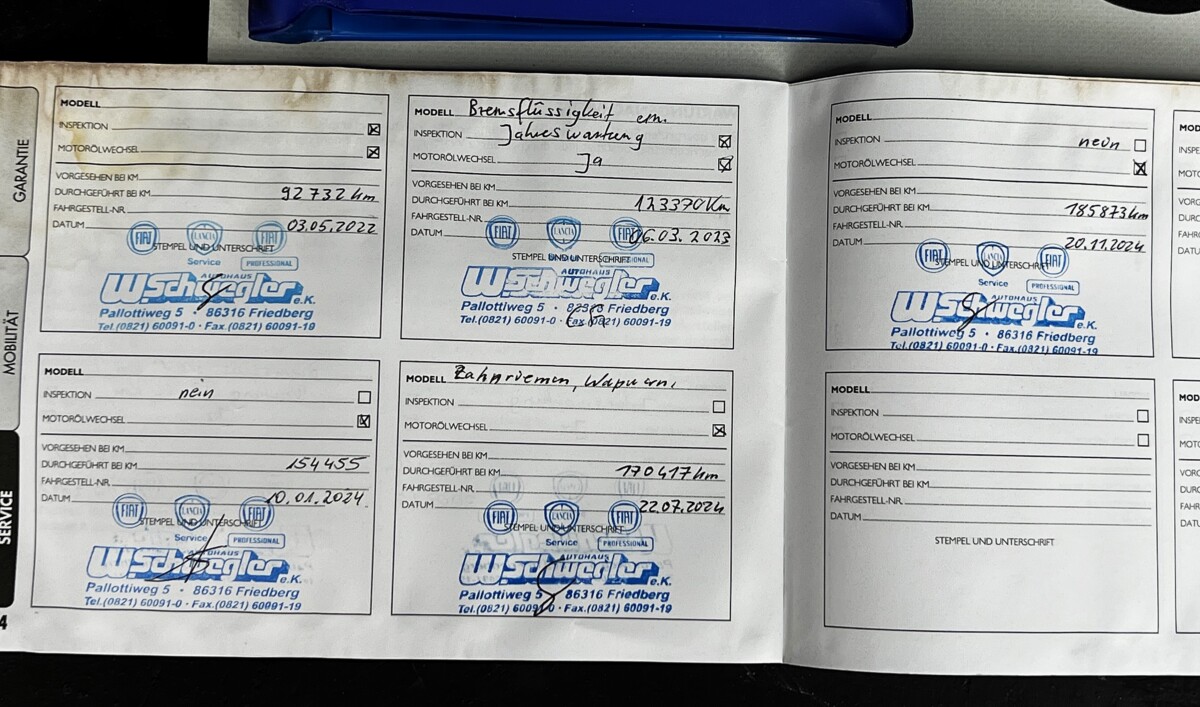 GARANTIE
MOBILITÄT
SERVICE
4
MODELL
INSPEKTION ☒
MOTORÖLWECHSEL ☒
VORGESEHEN BEI KM
DURCHGEFÜHRT BEI KM 92732 km
FAHRGESTELL-NR.
DATUM 03.05.2022
FIAT LANCIA FIAT
STEMPEL UND UNTERSCHRIFT
Service PROFESSIONAL
AUTOHAUS
W.Schwegler e.K.
Pallottiweg 5 · 86316 Friedberg
Tel.(0821) 60091-0 · Fax.(0821) 60091-19
MODELL Bremsflüssigkeit ern.
INSPEKTION Jahreswartung ☒
MOTORÖLWECHSEL Ja ☒
VORGESEHEN BEI KM
DURCHGEFÜHRT BEI KM 123370 Km
FAHRGESTELL-NR.
DATUM 06.03.2023
FIAT LANCIA FIAT
STEMPEL UND UNTERSCHRIFT
PROFESSIONAL
AUTOHAUS
W.Schwegler e.K.
Pallottiweg 5 · 86316 Friedberg
Tel.(0821) 60091-0 · Fax.(0821) 60091-19
MODELL
INSPEKTION nein ☐
MOTORÖLWECHSEL ☒
VORGESEHEN BEI KM
DURCHGEFÜHRT BEI KM 185873 km
FAHRGESTELL-NR.
DATUM 20.11.2024
FIAT LANCIA FIAT
STEMPEL UND UNTERSCHRIFT
Service PROFESSIONAL
AUTOHAUS
W.Schwegler e.K.
Pallottiweg 5 · 86316 Friedberg
Tel.(0821) 60091-0 · Fax.(0821) 60091-19
MOD
INSPE
MOTO
VORG
DURC
FAHR
DATU
MODELL
INSPEKTION nein ☐
MOTORÖLWECHSEL ☒
VORGESEHEN BEI KM
DURCHGEFÜHRT BEI KM 154455
FAHRGESTELL-NR.
DATUM 10.01.2024
FIAT LANCIA FIAT
STEMPEL UND UNTERSCHRIFT
Service PROFESSIONAL
AUTOHAUS
W.Schwegler e.K.
Pallottiweg 5 · 86316 Friedberg
Tel.(0821) 60091-0 · Fax.(0821) 60091-19
MODELL Zahnriemen, Wapu ern.
INSPEKTION ☐
MOTORÖLWECHSEL ☒
VORGESEHEN BEI KM
DURCHGEFÜHRT BEI KM 170417 km
FAHRGESTELL-NR.
DATUM 22.07.2024
FIAT LANCIA FIAT
STEMPEL UND UNTERSCHRIFT
Service PROFESSIONAL
AUTOHAUS
W.Schwegler e.K.
Pallottiweg 5 · 86316 Friedberg
Tel.(0821) 60091-0 · Fax.(0821) 60091-19
MODELL
INSPEKTION ☐
MOTORÖLWECHSEL ☐
VORGESEHEN BEI KM
DURCHGEFÜHRT BEI KM
FAHRGESTELL-NR.
DATUM
STEMPEL UND UNTERSCHRIFT
MOD
INSPE
MOTO
VORG
DURC
FAHR
DATU